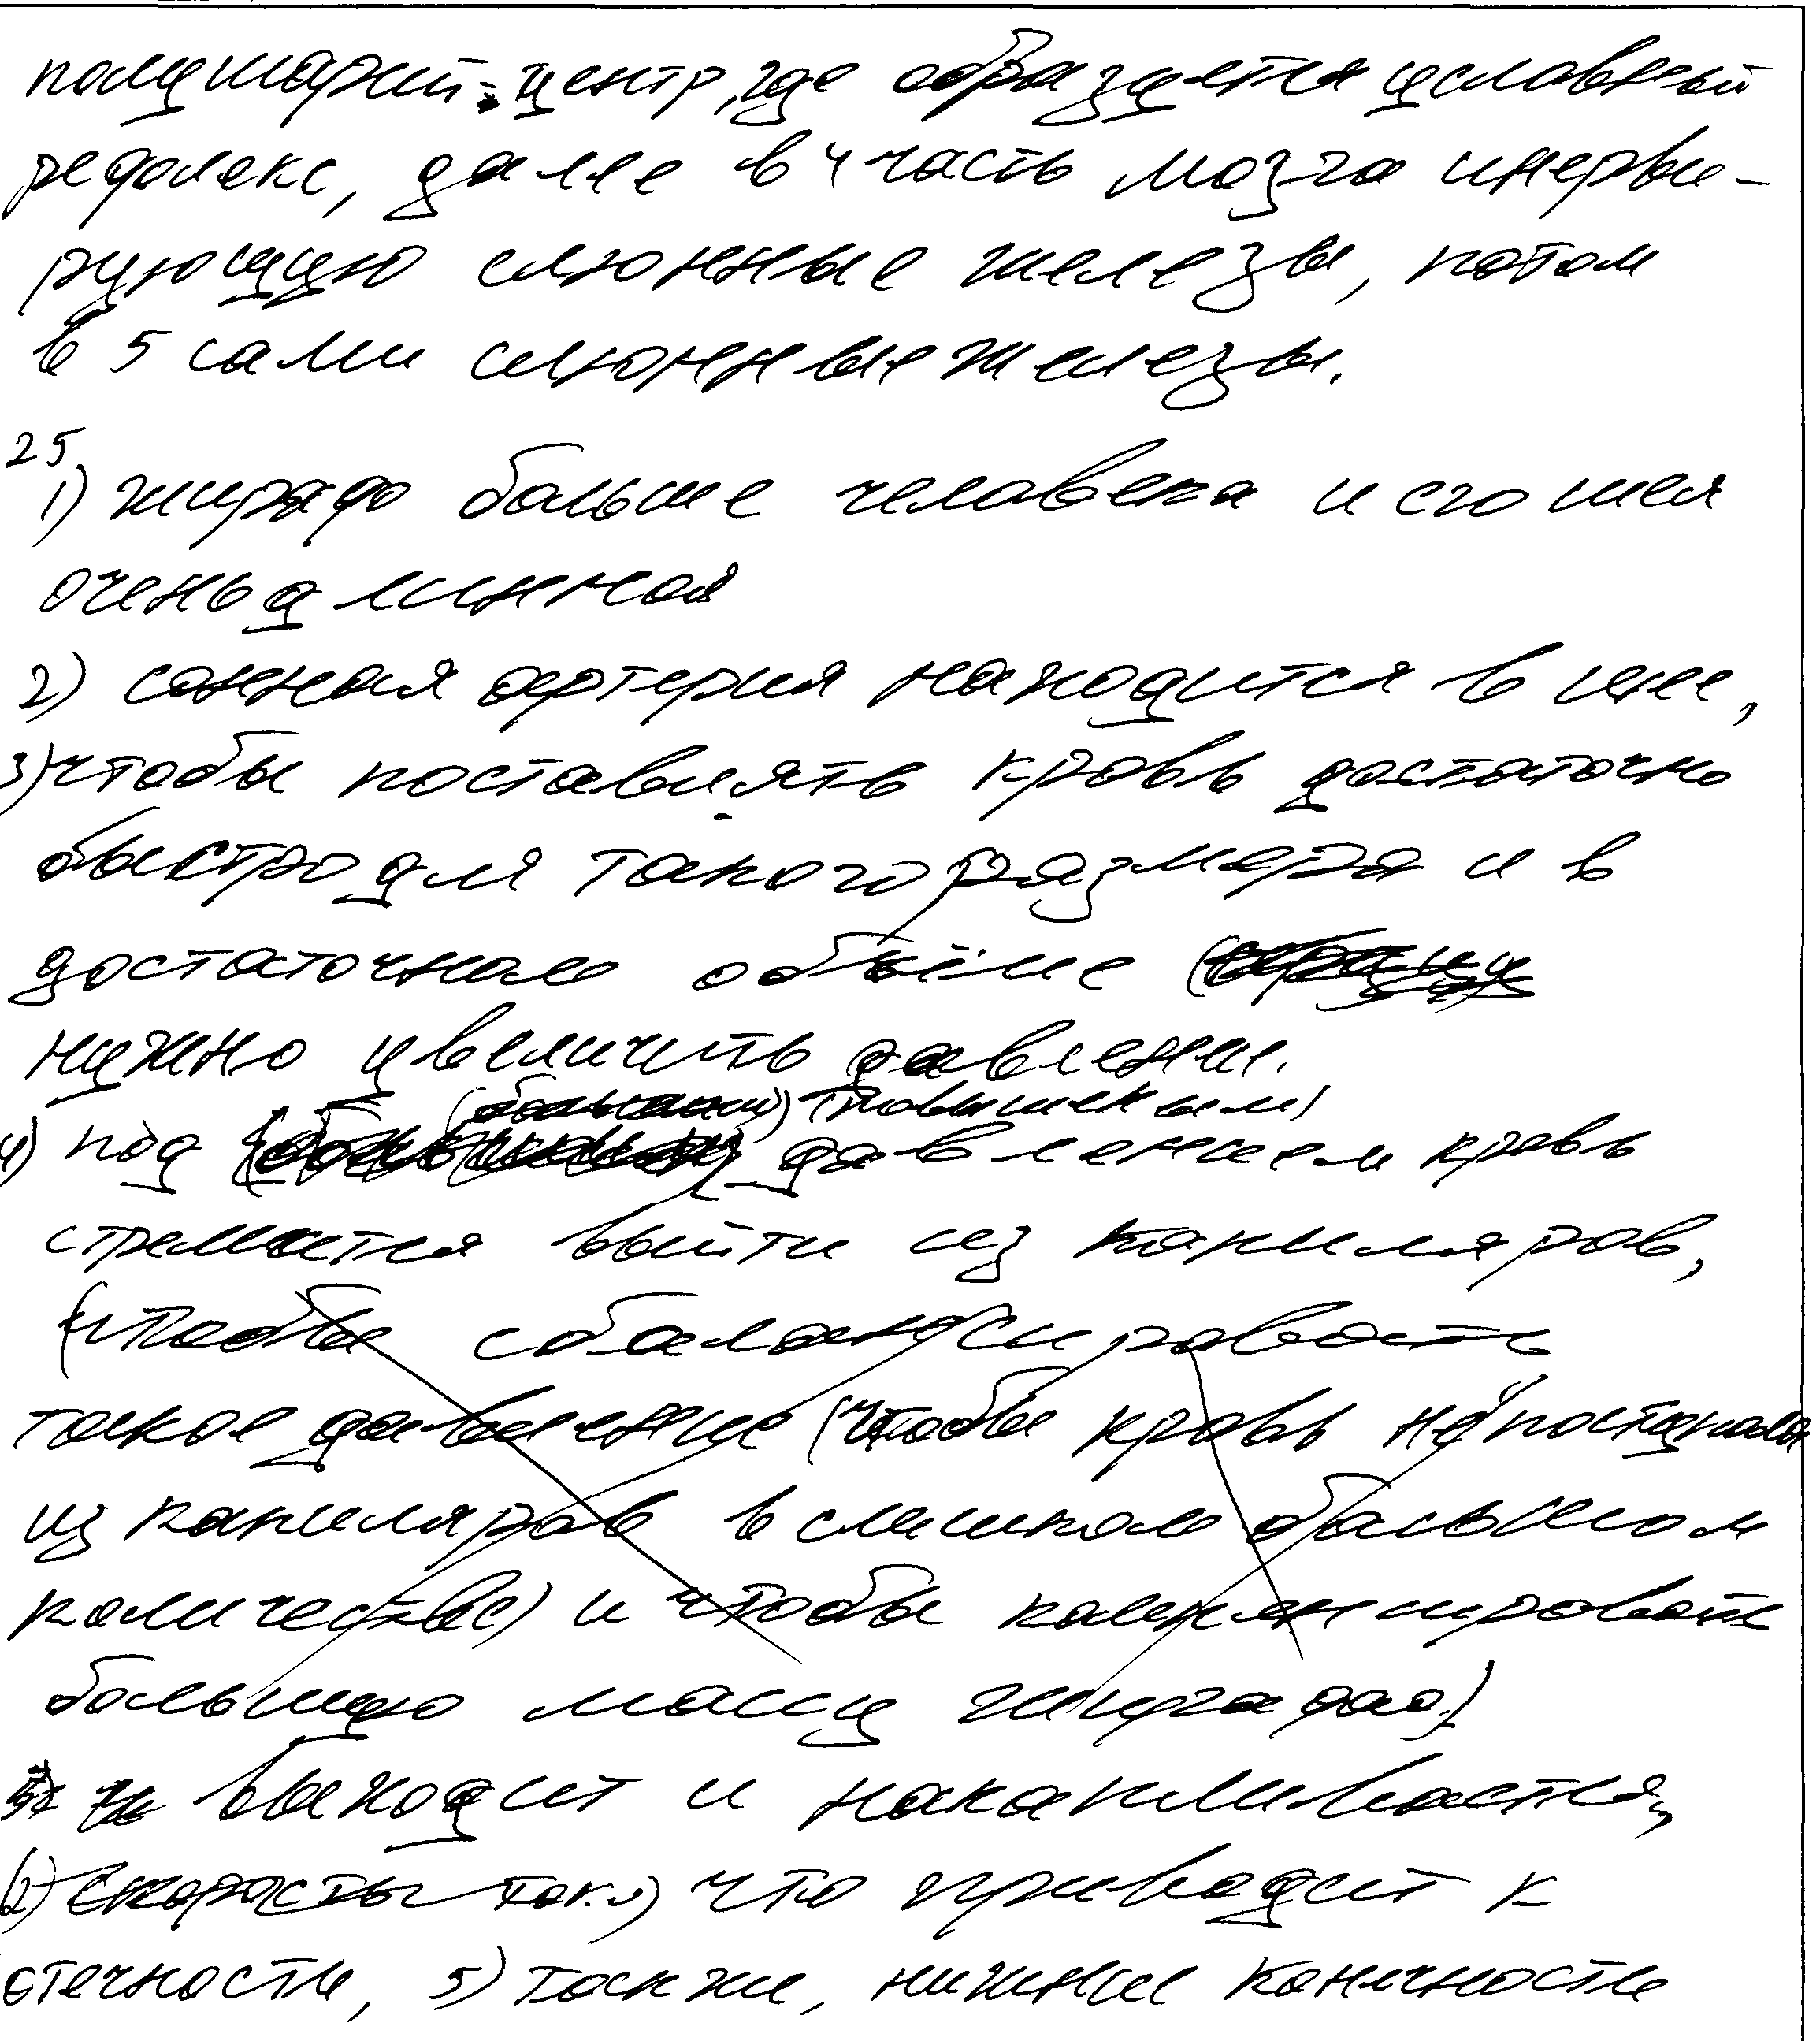 полушарий - центр, где образуется условный
рефлекс, далее в 4 часть мозга инерви-
рующую слюнные железы, потом
в 5 сами слюнные железы.
25
1) жираф больше человека и его шея
очень длинная
2) сонная артерия находится в шее,
3) чтобы поставлять кровь достаточно
быстро для такого размера и в
достаточном объёме
нужно увеличить давление.
(повышеным)
4) под давлением кровь
стремится выйти из капиляров,
(чтобы сбалансировать
такое давление (чтобы кровь не поступала
из капиляров в слишком большом
количестве) и чтобы компенсировать
большую массу жирафа.)
выходит и накапливается,
6) скорость тока) что приводит к
отечности, 5) также, нижние конечности